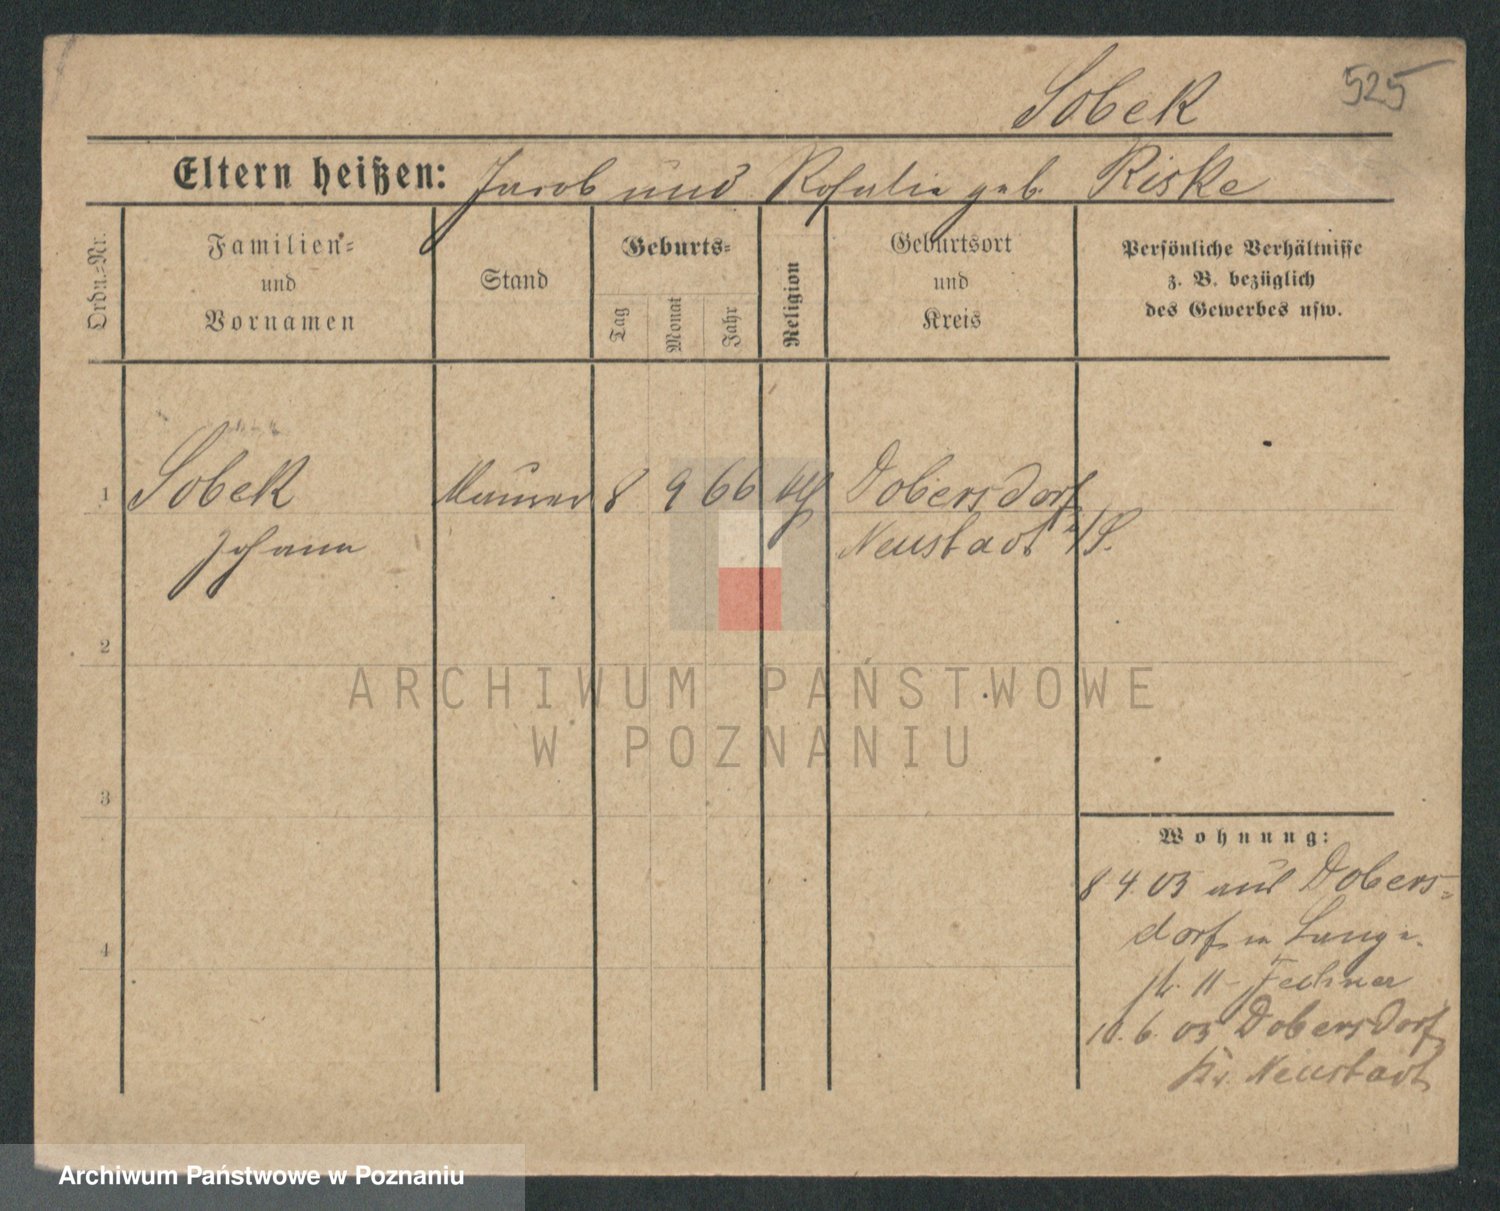 525
Sobek
Eltern heißen: Jacob und Rosalia geb. Riske
Ordn.-Nr.
Familien-
und
Vornamen
Stand
Geburts-
Tag
Monat
Jahr
Religion
Geburtsort
und
Kreis
Persönliche Verhältnisse
z. B. bezüglich
des Gewerbes usw.
1 Sobek Maurer 8 9 66 Dobersdorf
Johann Neustadt /S.
2
3
4
ARCHIWUM PAŃSTWOWE
W POZNANIU
Wohnung:
8 4. 03 aus Dobers-
dorf Lange
str. 11 - Fechner
10. 6. 03 Dobersdorf
Kr. Neustadt
Archiwum Państwowe w Poznaniu